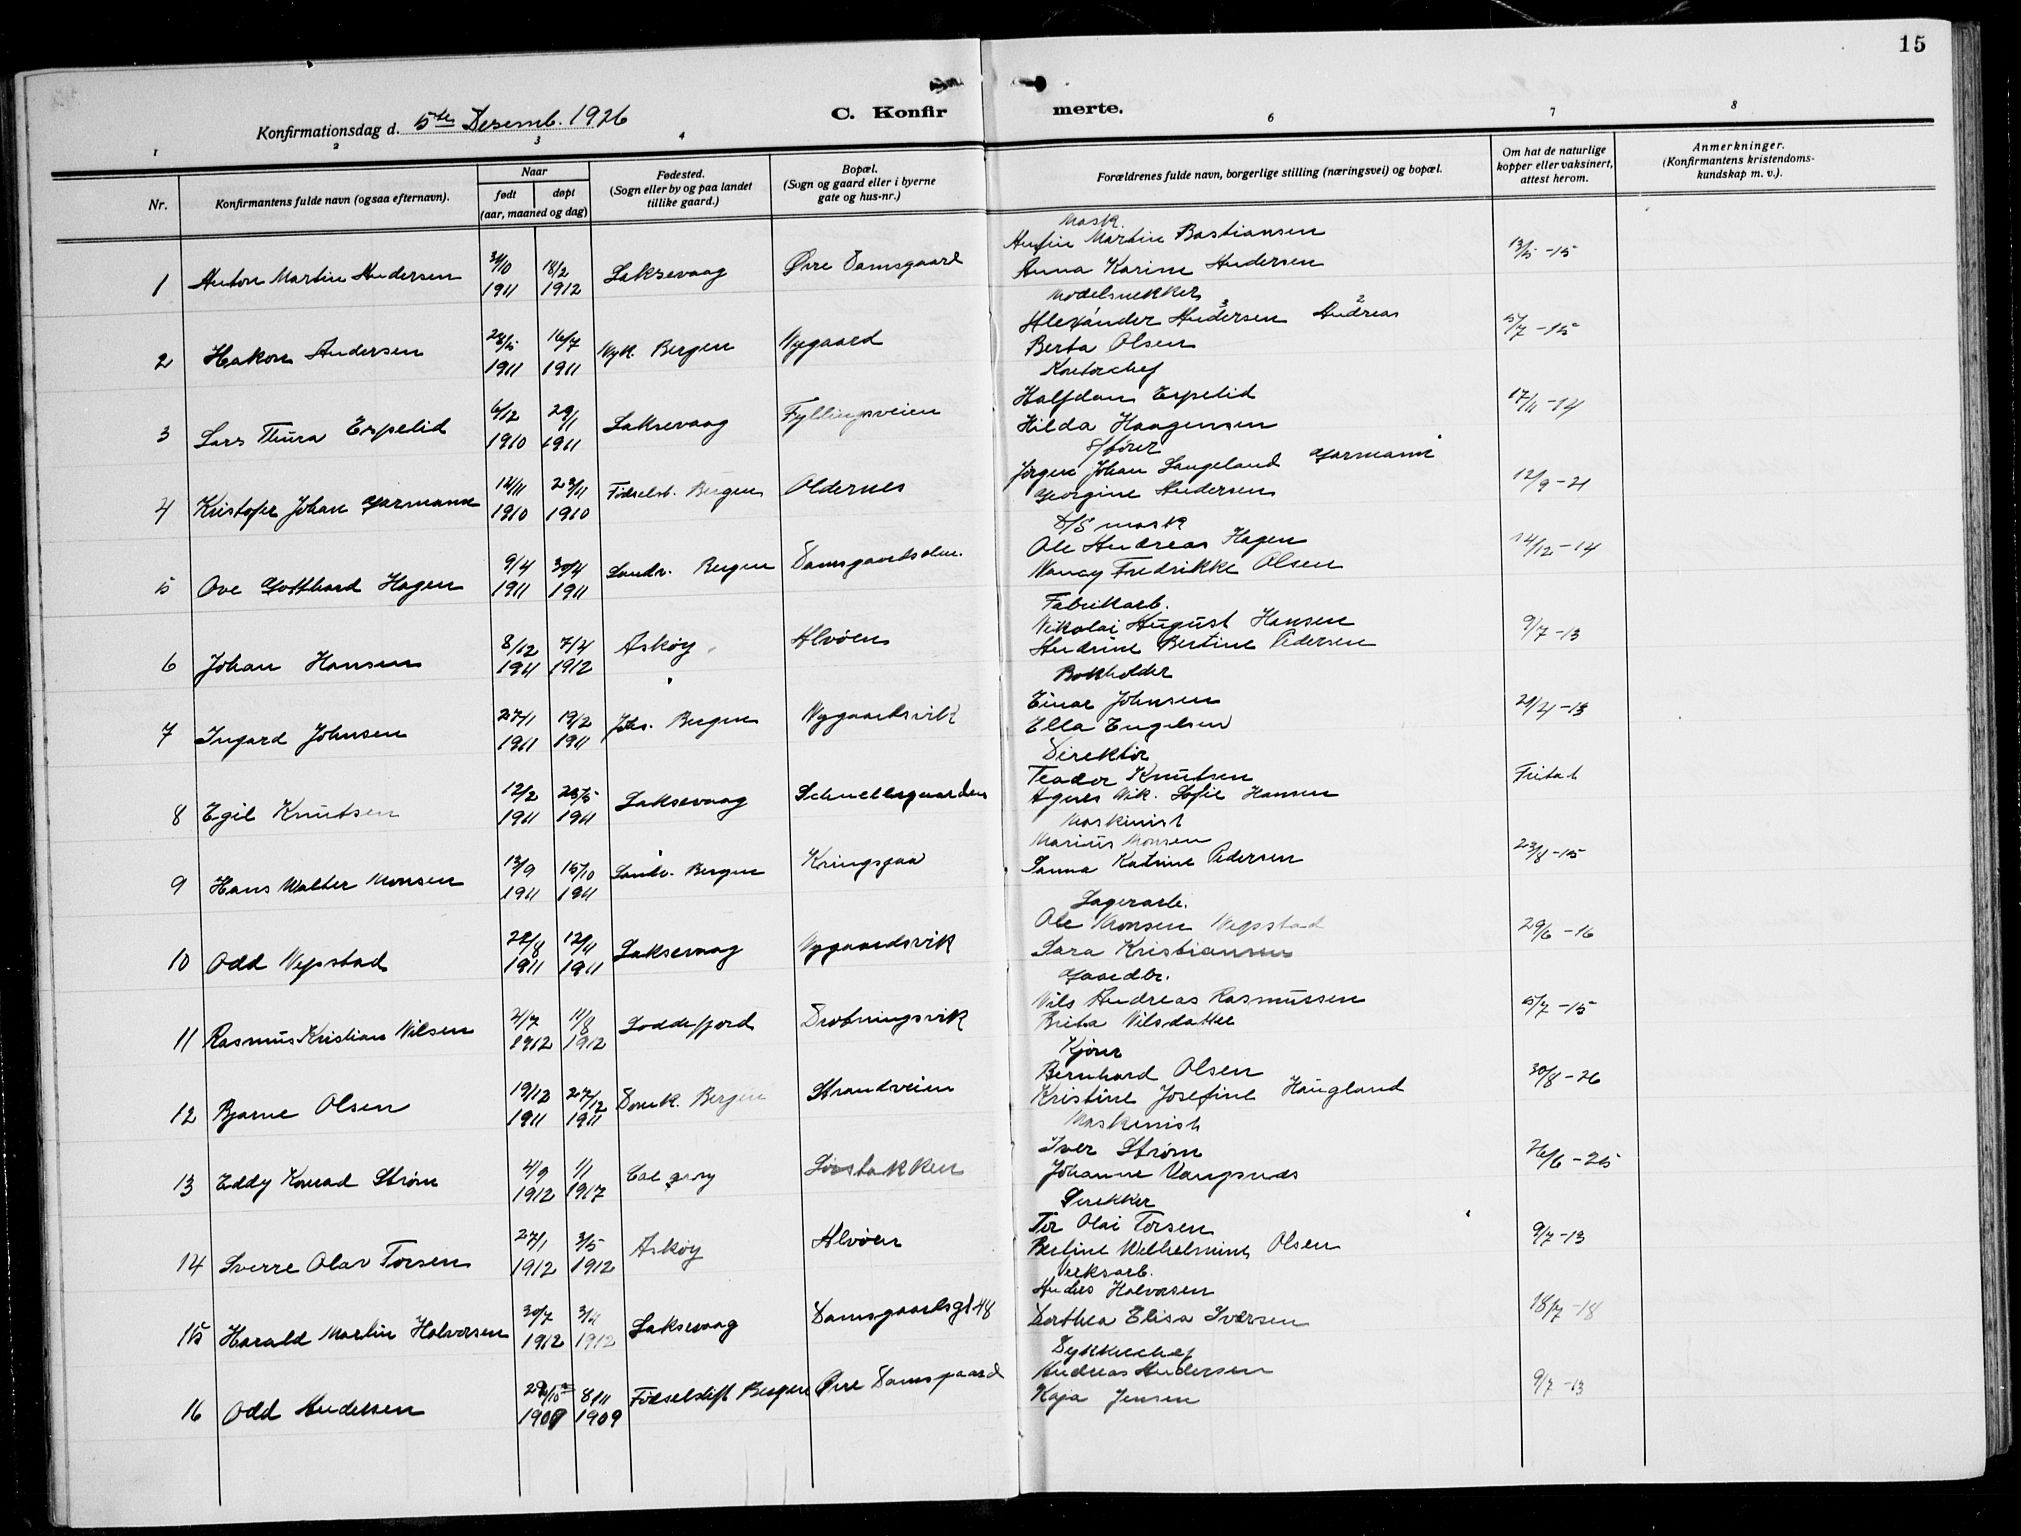 15
Konfirmationsdag d. 5te Desemb. 1926
C. Konfirmerte.
1 2 3 4 6 7 8
Nr.
Konfirmantens fulde navn (ogsaa efternavn).
Naar
født døpt
(aar, maaned og dag)
Fødested.
(Sogn eller by og paa landet
tillike gaard.)
Bopæl.
(Sogn og gaard eller i byerne
gate og hus-nr.)
Forældrenes fulde navn, borgerlige stilling (næringsvei) og bopæl.
Om hat de naturlige
kopper eller vaksinert,
attest herom.
Anmerkninger.
(Konfirmantens kristendoms-
kundskap m. v.).
Mask.
Anfin Martin Bastiansen
1 Anton Martin Andersen 18/2 Laksevaag Øvre Damsgaard 13/5 -15
1911 1912 Anna Karine Andersen
Modelsnekker
Alexander Andersen 3 Andreas 2
2 Hakon Andersen 28/5 16/7 Nyk. Bergen Nygaard Berta Olsen 5/7 -15
1911 1911
Kontorchef
Halfdan Espelid
3 Lars Thura Espelid 6/12 29/1 Laksevaag Fyllingsveien 17/11 -14
1910 1911 Hilda Haagensen
S/fører
Jørgen Johan Langeland Garmann
4 Kristofer Johan Garmann 12/11 23/11 Fødselst. Bergen Oldernes 12/9 -21
1910 1910 Georgine Andersen
D/S mask
Ole Andreas Hagen
5 Ove Gotthard Hagen 9/4 30/4 Sandv. Bergen Damsgaardsalm. 14/12 -14
1911 1911 Nancy Fredrikke Olsen
Fabrikarb.
Nikolai August Hansen
6 Johan Hansen 8/12 7/4 Askøy Alvøen 9/7 -13
1911 1912 Andrine Bertine Pedersen
Bokholder
Einar Johnsen
7 Ingard Johnsen 27/1 19/2 Johs. Bergen Nygaardsvik 29/4 -13
1911 1911 Ella Engelsen
Direktør
Teodor Knutsen
8 Egil Knutsen 12/2 28/5 Laksevaag Schnellegaarden Fritat
1911 1911 Agnes Nik. Sofie Hansen
Maskinist
Marius Monsen
9 Hans Walter Monsen 13/9 15/10 Sandv. Bergen Kringsjaa 23/8 -15
1911 1911 Sanna Katrine Pedersen
Lagerarb.
Ole Monsen Vepstad
10 Odd Vepstad 28/8 12/11 Laksevaag Nygaardsvik 29/6 -16
1911 1911 Sara Kristiansen
Gaardbr.
Nils Andreas Rasmussen
11 Rasmus Kristian Nilsen 2/7 11/8 Loddefjord Drotningsvik 5/7 -15
1912 1912 Brita Nilsdatter
Kjører
Bernhard Olsen
12 Bjarne Olsen 19/12 27/12 Domk. Bergen Strandveien 30/8 -26
1911 1911 Kristine Josefine Haugland
Maskinist
Iver Strøm
13 Eddy Konrad Strøm 4/9 1/1 Calgary Løvstakken 26/6 -25
1912 1917 Johanne Vangsnes
Snekker
Tor Olai Torsen
14 Sverre Olav Torsen 27/1 3/5 Askøy Alvøen 9/7 -13
1912 1912 Bertine Wilhelmine Olsen
Verksarb.
Anders Halvorsen
15 Harald Martin Halvorsen 30/7 3/4 Laksevaag Damsgaardsgt 48 18/7 -18
1912 1912 Dorthea Elisa Iversen
Dykkerchef
Andreas Andersen
16 Odd Andersen 8/11 Fødselsst Bergen Øvre Damsgaard 9/7 -13
1909 1909 Kaja Jensen